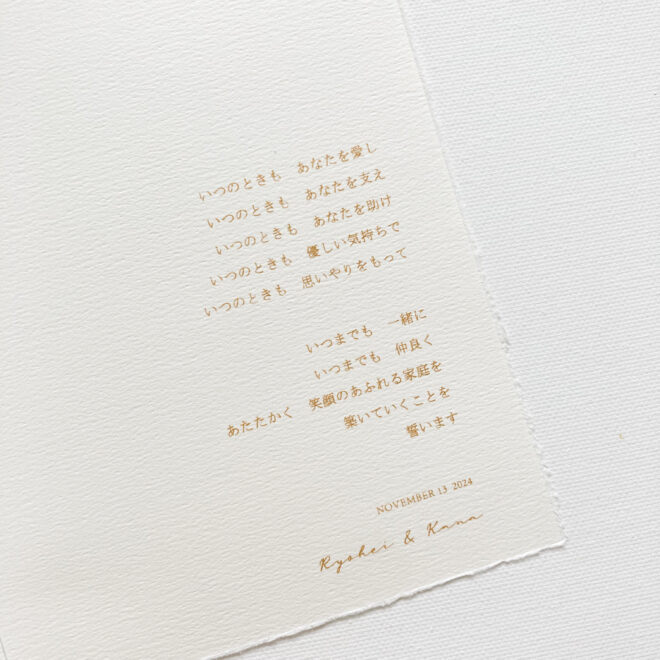 いつのときも　あなたを愛し
いつのときも　あなたを支え
いつのときも　あなたを助け
いつのときも　優しい気持ちで
いつのときも　思いやりをもって
いつまでも　一緒に
いつまでも　仲良く
あたたかく　笑顔のあふれる家庭を
築いていくことを
誓います
NOVEMBER 13 2024
Ryohei & Kana